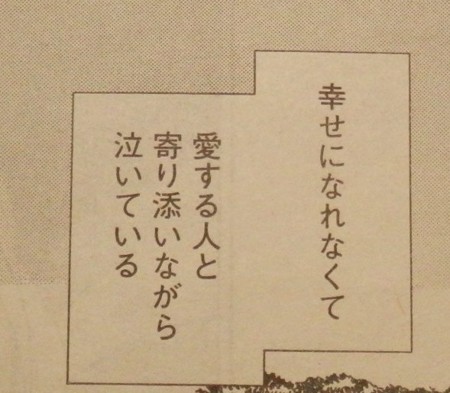 幸せになれなくて
愛する人と
寄り添いながら
泣いている